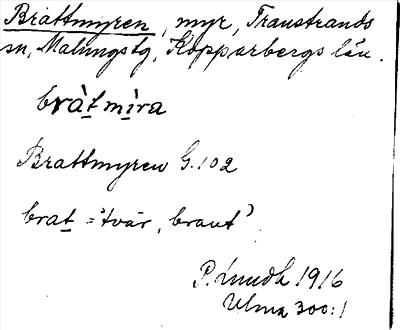 Brattmyren, myr, Transtrands
sn, Malungs tg, Kopparbergs län.
bràt mìra
Brattmyren G. 102
brat = 'tvär, brant'
P. Linudh 1916
Ulma 300:1